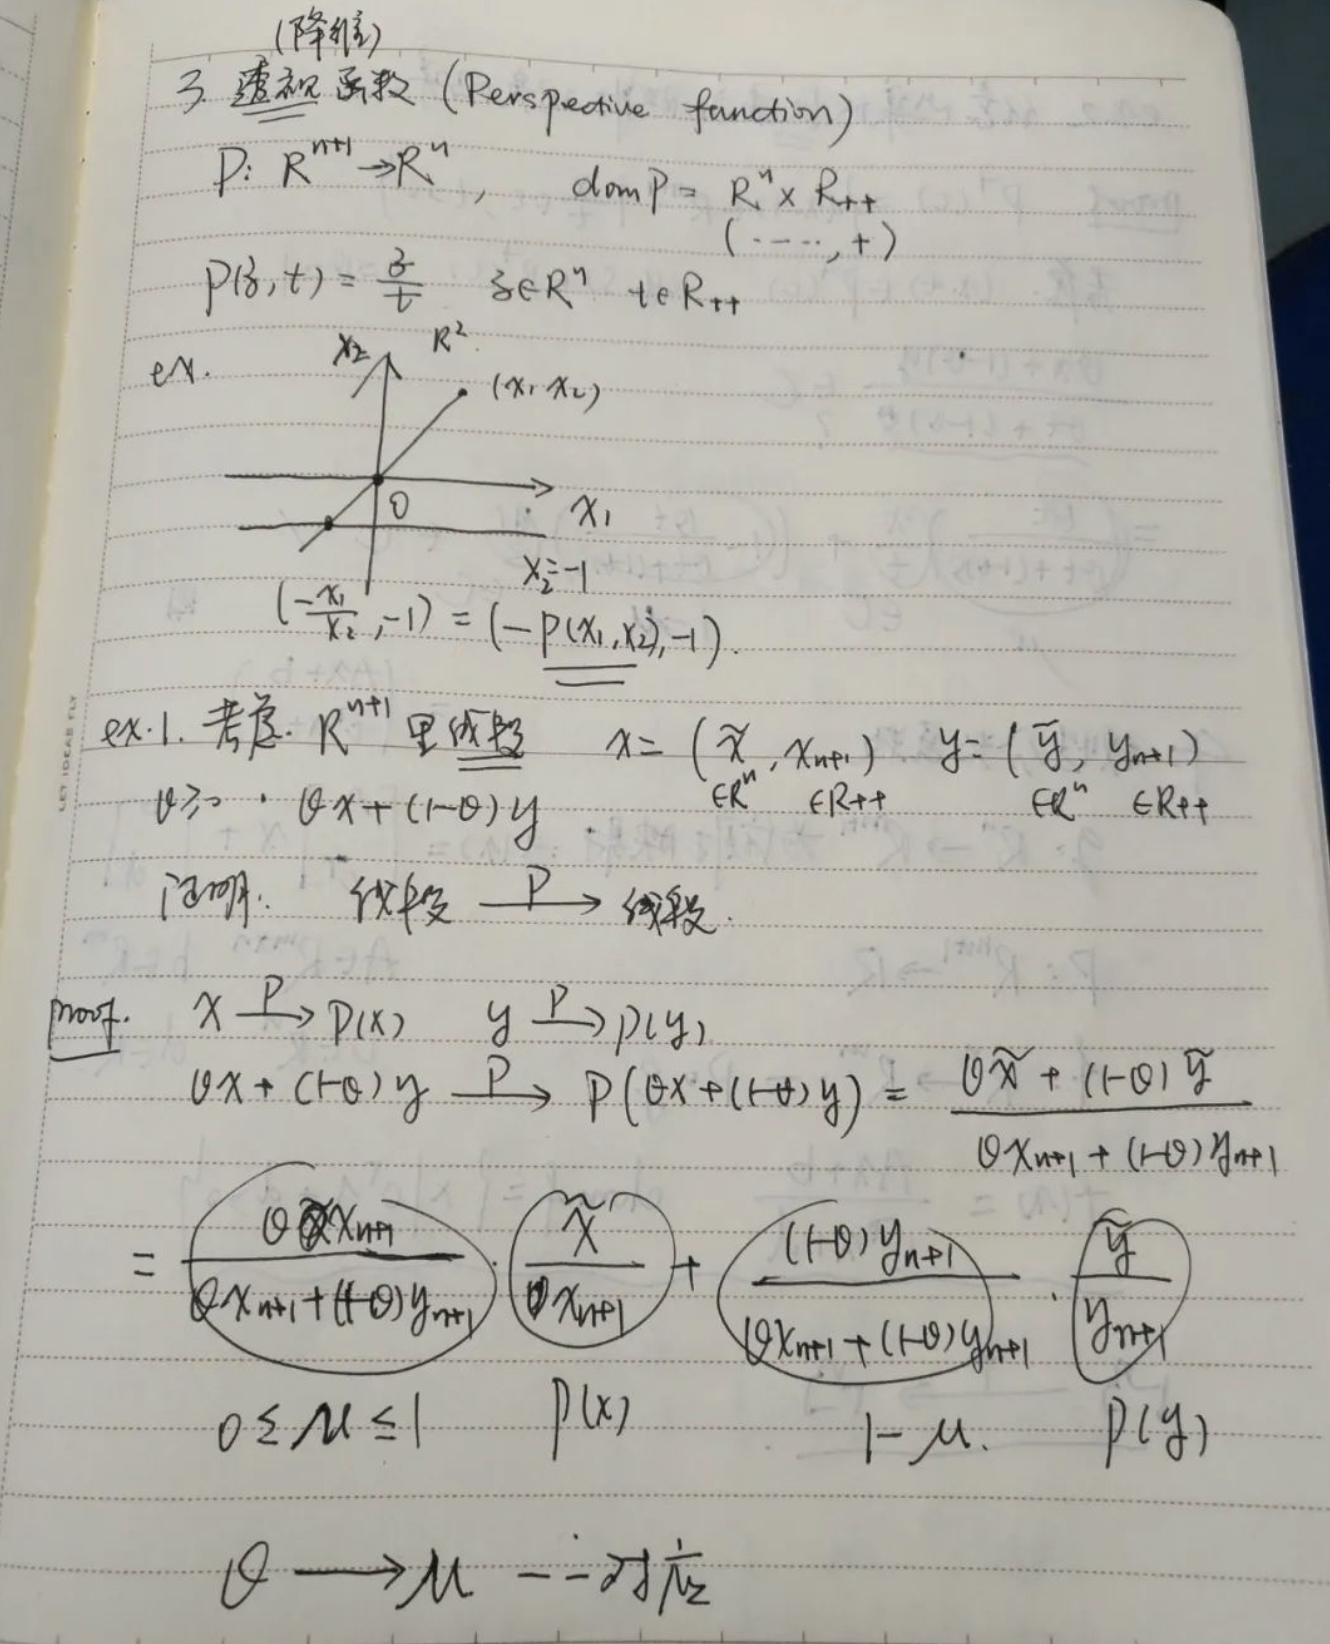 (降维)
3. 透视函数 (Perspective function)
P: Rⁿ⁺¹→Rⁿ, dom P = Rⁿ × R₊₊
(·····, +)
P(z, t) = z/t z∈Rⁿ t∈R₊₊
ex. x₂ R²
(x₁ x₂)
0 x₁
x₂=-1
(-x₁/x₂, -1) = (-P(x₁,x₂), -1).
LET IDEAS FLY
ex.1. 考虑. Rⁿ⁺¹ 里线段 x = (x̃, xₙ₊₁) y = (ỹ, yₙ₊₁)
∈Rⁿ ∈R₊₊ ∈Rⁿ ∈R₊₊
θ≥0 · θx+(1-θ)y
证明: 线段 —P→ 线段.
proof. x —P→ P(x) y —P→ P(y)
θx+(1-θ)y —P→ P(θx+(1-θ)y) = (θx̃ + (1-θ)ỹ)/(θxₙ₊₁ + (1-θ)yₙ₊₁)
= (θxₙ₊₁)/(θxₙ₊₁+(1-θ)yₙ₊₁) · x̃/xₙ₊₁ + ((1-θ)yₙ₊₁)/(θxₙ₊₁+(1-θ)yₙ₊₁) · ỹ/yₙ₊₁
0≤μ≤1 P(x) 1-μ. P(y)
θ → μ 一一对应